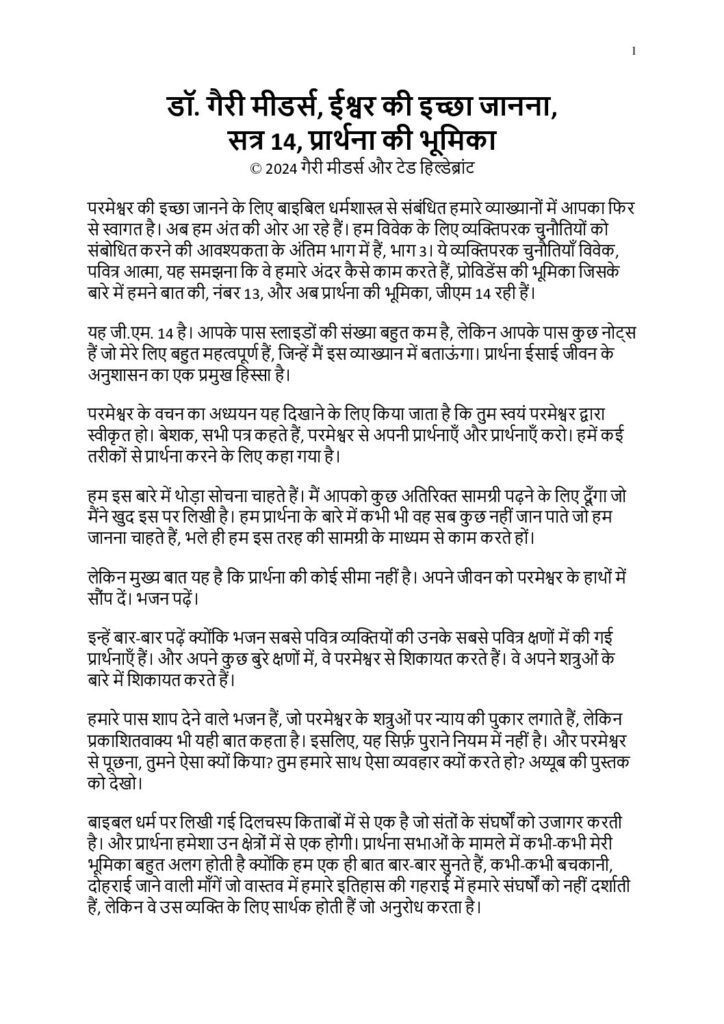 1
डॉ. गैरी मीडर्स, ईश्वर की इच्छा जानना,
सत्र 14, प्रार्थना की भूमिका
© 2024 गैरी मीडर्स और टेड हिल्डेब्रांट
परमेश्वर की इच्छा जानने के लिए बाइबिल धर्मशास्त्र से संबंधित हमारे व्याख्यानों में आपका फिर
से स्वागत है। अब हम अंत की ओर आ रहे हैं। हम विवेक के लिए व्यक्तिपरक चुनौतियों को
संबोधित करने की आवश्यकता के अंतिम भाग में हैं, भाग 3। ये व्यक्तिपरक चुनौतियाँ विवेक,
पवित्र आत्मा, यह समझना कि वे हमारे अंदर कैसे काम करते हैं, प्रोविडेंस की भूमिका जिसके
बारे में हमने बात की, नंबर 13, और अब प्रार्थना की भूमिका, जीएम 14 रही हैं।
यह जी.एम. 14 है। आपके पास स्लाइडों की संख्या बहुत कम है, लेकिन आपके पास कुछ नोट्स
हैं जो मेरे लिए बहुत महत्वपूर्ण हैं, जिन्हें मैं इस व्याख्यान में बताऊंगा। प्रार्थना ईसाई जीवन के
अनुशासन का एक प्रमुख हिस्सा है।
परमेश्वर के वचन का अध्ययन यह दिखाने के लिए किया जाता है कि तुम स्वयं परमेश्वर द्वारा
स्वीकृत हो। बेशक, सभी पत्र कहते हैं, परमेश्वर से अपनी प्रार्थनाएँ और प्रार्थनाएँ करो। हमें कई
तरीकों से प्रार्थना करने के लिए कहा गया है।
हम इस बारे में थोड़ा सोचना चाहते हैं। मैं आपको कुछ अतिरिक्त सामग्री पढ़ने के लिए दूँगा जो
मैंने खुद इस पर लिखी है। हम प्रार्थना के बारे में कभी भी वह सब कुछ नहीं जान पाते जो हम
जानना चाहते हैं, भले ही हम इस तरह की सामग्री के माध्यम से काम करते हों।
लेकिन मुख्य बात यह है कि प्रार्थना की कोई सीमा नहीं है। अपने जीवन को परमेश्वर के हाथों में
सौंप दें। भजन पढ़ें।
इन्हें बार-बार पढ़ें क्योंकि भजन सबसे पवित्र व्यक्तियों की उनके सबसे पवित्र क्षणों में की गई
प्रार्थनाएँ हैं। और अपने कुछ बुरे क्षणों में, वे परमेश्वर से शिकायत करते हैं। वे अपने शत्रुओं के
बारे में शिकायत करते हैं।
हमारे पास शाप देने वाले भजन हैं, जो परमेश्वर के शत्रुओं पर न्याय की पुकार लगाते हैं, लेकिन
प्रकाशितवाक्य भी यही बात कहता है। इसलिए, यह सिर्फ़ पुराने नियम में नहीं है। और परमेश्वर
से पूछना, तुमने ऐसा क्यों किया? तुम हमारे साथ ऐसा व्यवहार क्यों करते हो? अय्यूब की पुस्तक
को देखो।
बाइबल धर्म पर लिखी गई दिलचस्प किताबों में से एक है जो संतों के संघर्षों को उजागर करती
है। और प्रार्थना हमेशा उन क्षेत्रों में से एक होगी। प्रार्थना सभाओं के मामले में कभी-कभी मेरी
भूमिका बहुत अलग होती है क्योंकि हम एक ही बात बार-बार सुनते हैं, कभी-कभी बचकानी,
दोहराई जाने वाली माँगें जो वास्तव में हमारे इतिहास की गहराई में हमारे संघर्षों को नहीं दर्शाती
हैं, लेकिन वे उस व्यक्ति के लिए सार्थक होती हैं जो अनुरोध करता है।